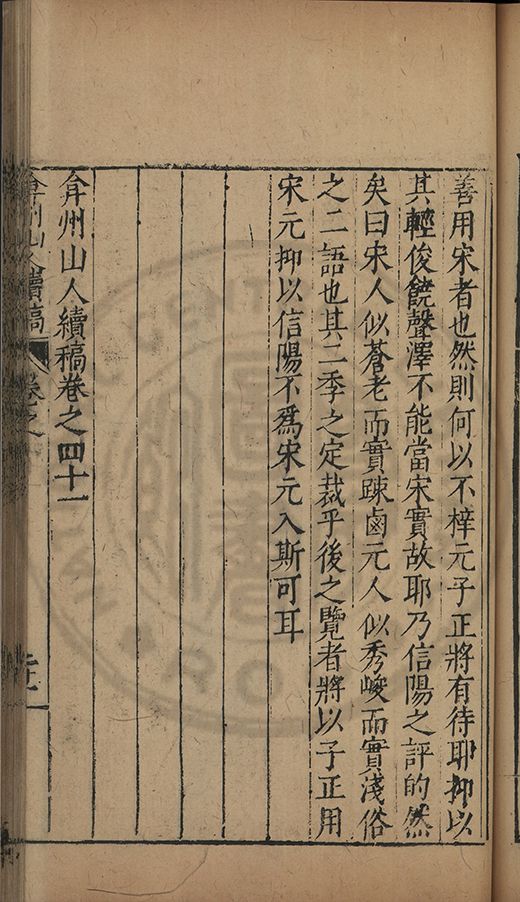 善用宋者也然則何以不梓元子正將有待耶抑以
其輕俊饒聲澤不能當宋實故耶乃信陽之評的然
矣曰宋人似蒼老而實疎鹵元人似秀峻而實淺俗
之二語也其二季之定裁乎後之覽者將以子正用
宋元抑以信陽不爲宋元入斯可耳
弇州山人續稿卷之四十一
弇州山人續稿